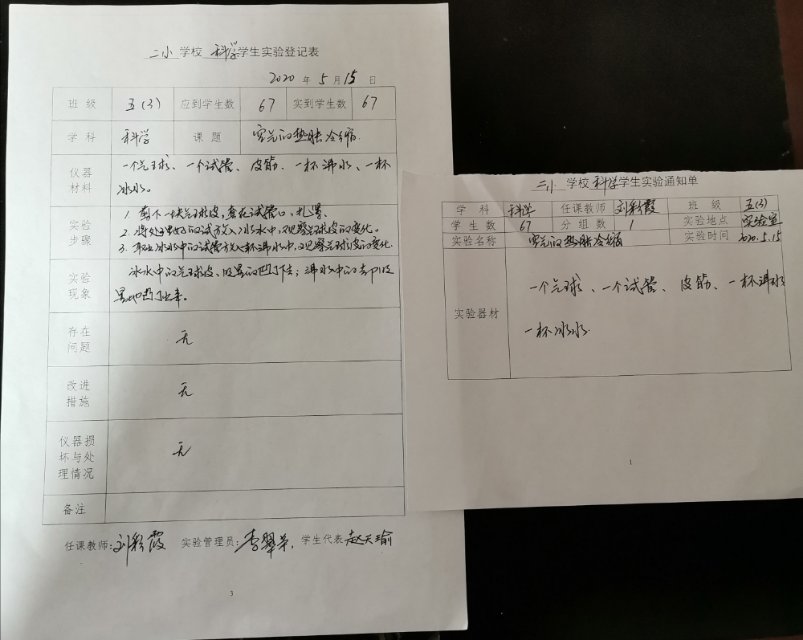 二小 学校 科学 学生实验登记表
2020 年 5 月 15 日
班 级 五(3) 应到学生数 67 实到学生数 67
学 科 科学 课 题 空气的热胀冷缩
仪器 材料 一个气球、一个试管、皮筋、一杯沸水、一杯
冰水。
实验 步骤 1. 剪下一块气球皮,套在试管口,扎紧。
2. 将处理好的试管放入冰水中,观察气球皮的变化。
3. 取出冰水中的试管放入一杯沸水中,观察气球皮的变化.
实验 现象 冰水中的气球皮,明显的凹下去;沸水中的
明显地凸出来。
存在 问题 无
改进 措施 无
仪器损 坏与处 理情况 无
备注
任课教师:刘彩霞 实验管理员:李翠荣 学生代表 赵天瑜
3
二小 学校 科学 学生实验通知单
学 科 科学 任课教师 刘彩霞 班 级 五(3)
学 生 数 67 分 组 数 1 实验地点 实验室
实验名称 空气的热胀冷缩 实验时间 2020.5.15
实验器材 一个气球、一个试管、皮筋、一杯沸水
一杯冰水
1